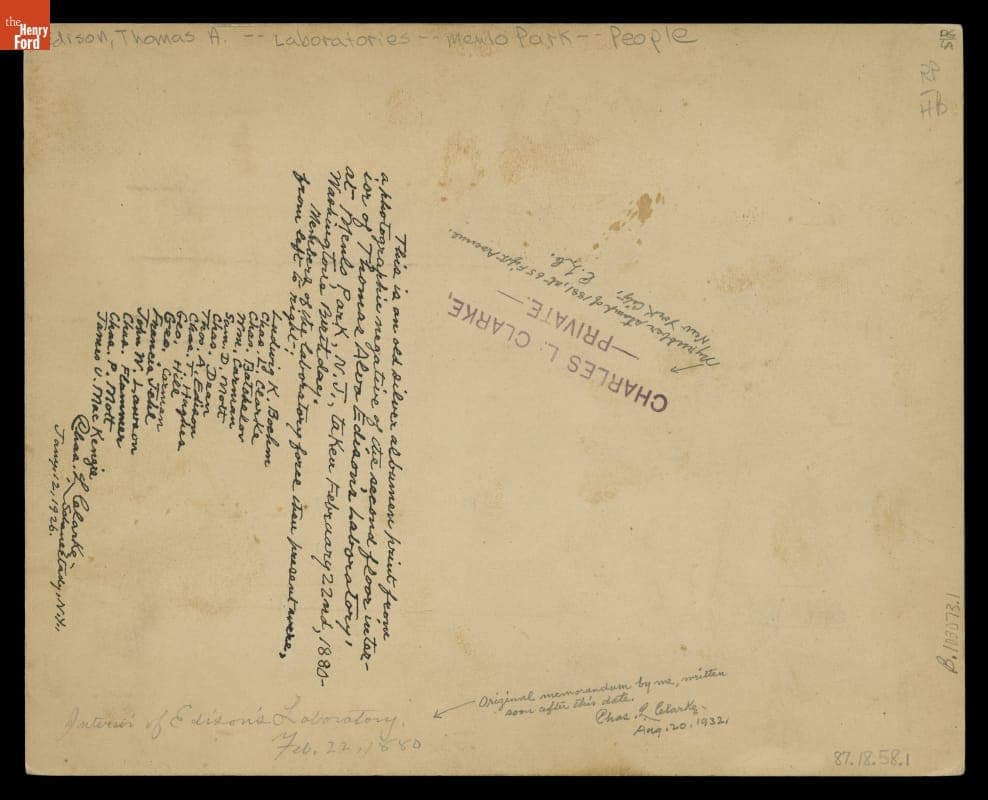 the
Henry
Ford
Edison, Thomas A. -- Laboratories -- Menlo Park -- People
This is an old silver albumen print from
a photographic negative of the second floor inter-
ior of Thomas Alva Edison's Laboratory,
at Menlo Park, N.J., taken February 22nd, 1880-
Washington's Birthday.
Members of the laboratory force then present were,
from left to right:-
Ludwig K. Boehm
Chas. L. Clarke
Chas. Batchelor
Wm. Carman
Sam. D. Mott
Chas. Dean
Thos. A. Edison
Chas. T. Hughes
Geo. Hill
Geo. Carman
Francis Jehl
John W. Lawson
Chas. Flammer
Chas. P. Mott
James U. MacKenzie
Chas. L. Clarke-
Schenectady, N.Y.,
Jany. 12, 1926.
CHARLES L. CLARKE,
—PRIVATE.—
My rubber stamp of 1881, at 65 Fifth Avenue,
New York City.
C.L.C.
Original memorandum by me, written
soon after this date.
Chas. L. Clarke-
Aug. 20, 1932.
Interior of Edison's Laboratory.
Feb. 22, 1880
B.103073.1
87.18.58.1